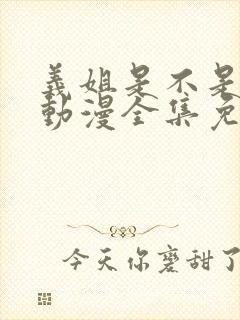 義姐是不是
動漫全集免
今天你磨甜了